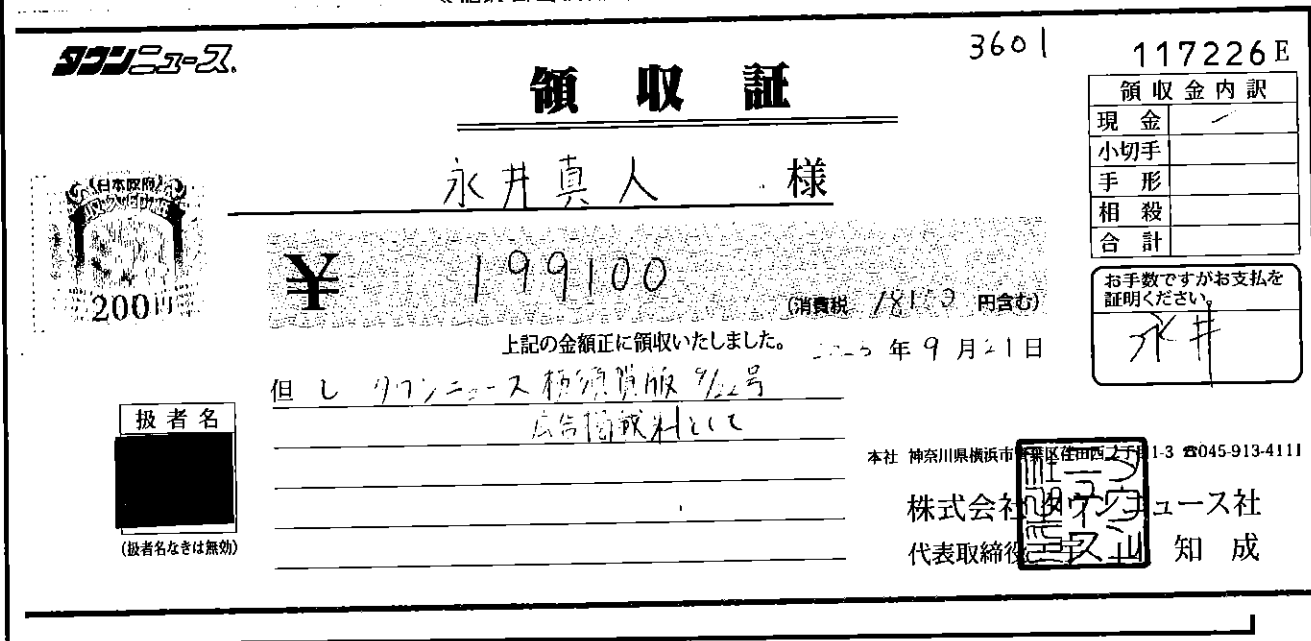 タウンニュース.
3601
117226E
領収証
領収金内訳
現金
小切手
手形
相殺
合計
永井真人 様
日本政府
200円
¥ 199100
(消費税 18100 円含む)
お手数ですがお支払を
証明ください。
永井
上記の金額正に領収いたしました。
年9月21日
但し タウンニュース横須賀版 9/22号
広告掲載料として
扱者名
(扱者名なきは無効)
本社 神奈川県横浜市青葉区荏田西2丁目1-3 ☎045-913-4111
株式会社タウンニュース社
代表取締役 知成